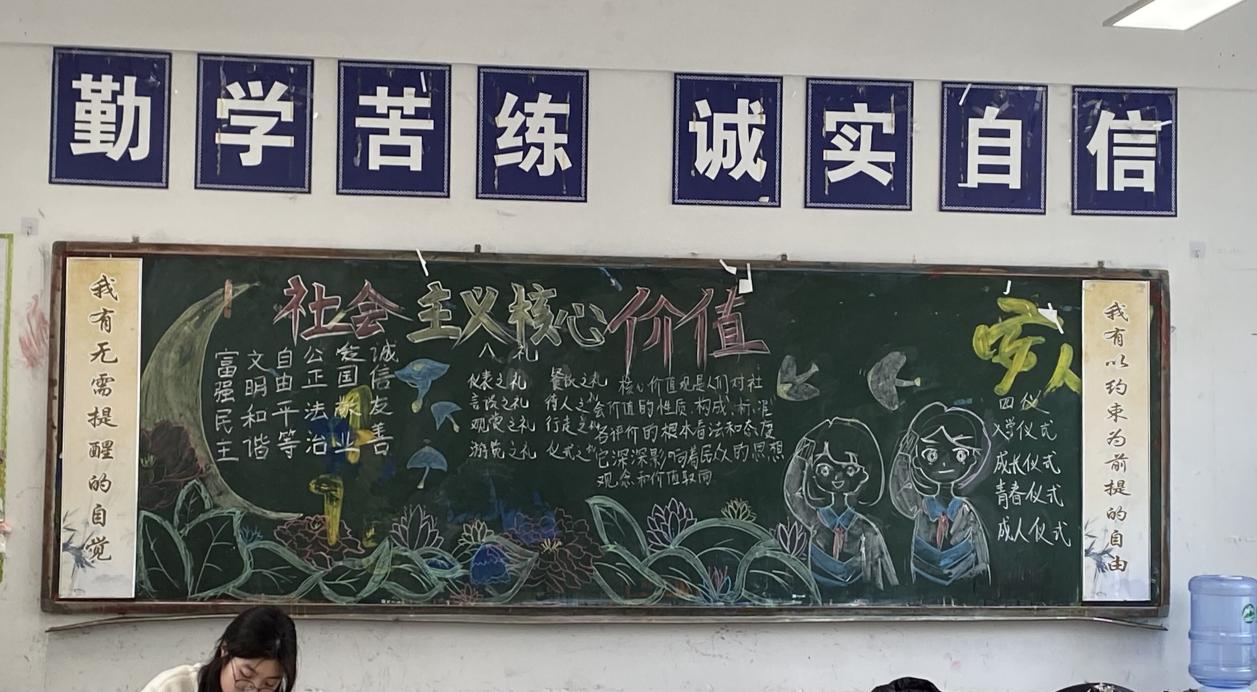 勤学苦练 诚实自信
我有无需提醒的自觉
社会主义核心价值
富强民主
文明和谐
自由平等
公正法治
爱国敬业
诚信友善
八礼
仪表之礼 餐饮之礼
言谈之礼 待人之礼
观赏之礼 行走之礼
游览之礼 仪式之礼
核心价值观是人们对社
会价值的性质、构成、标准
和评价的根本看法和态度
它深深影响着民众的思想
观念和价值取向
四仪
入学仪式
成长仪式
青春仪式
成人仪式
我有以约束为前提的自由